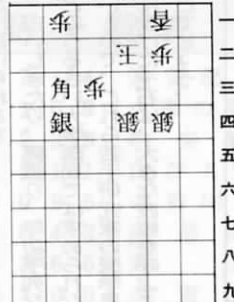 歩 香 一
王 歩 二
角 歩 三
銀 銀 銀 四
五
六
七
八
九